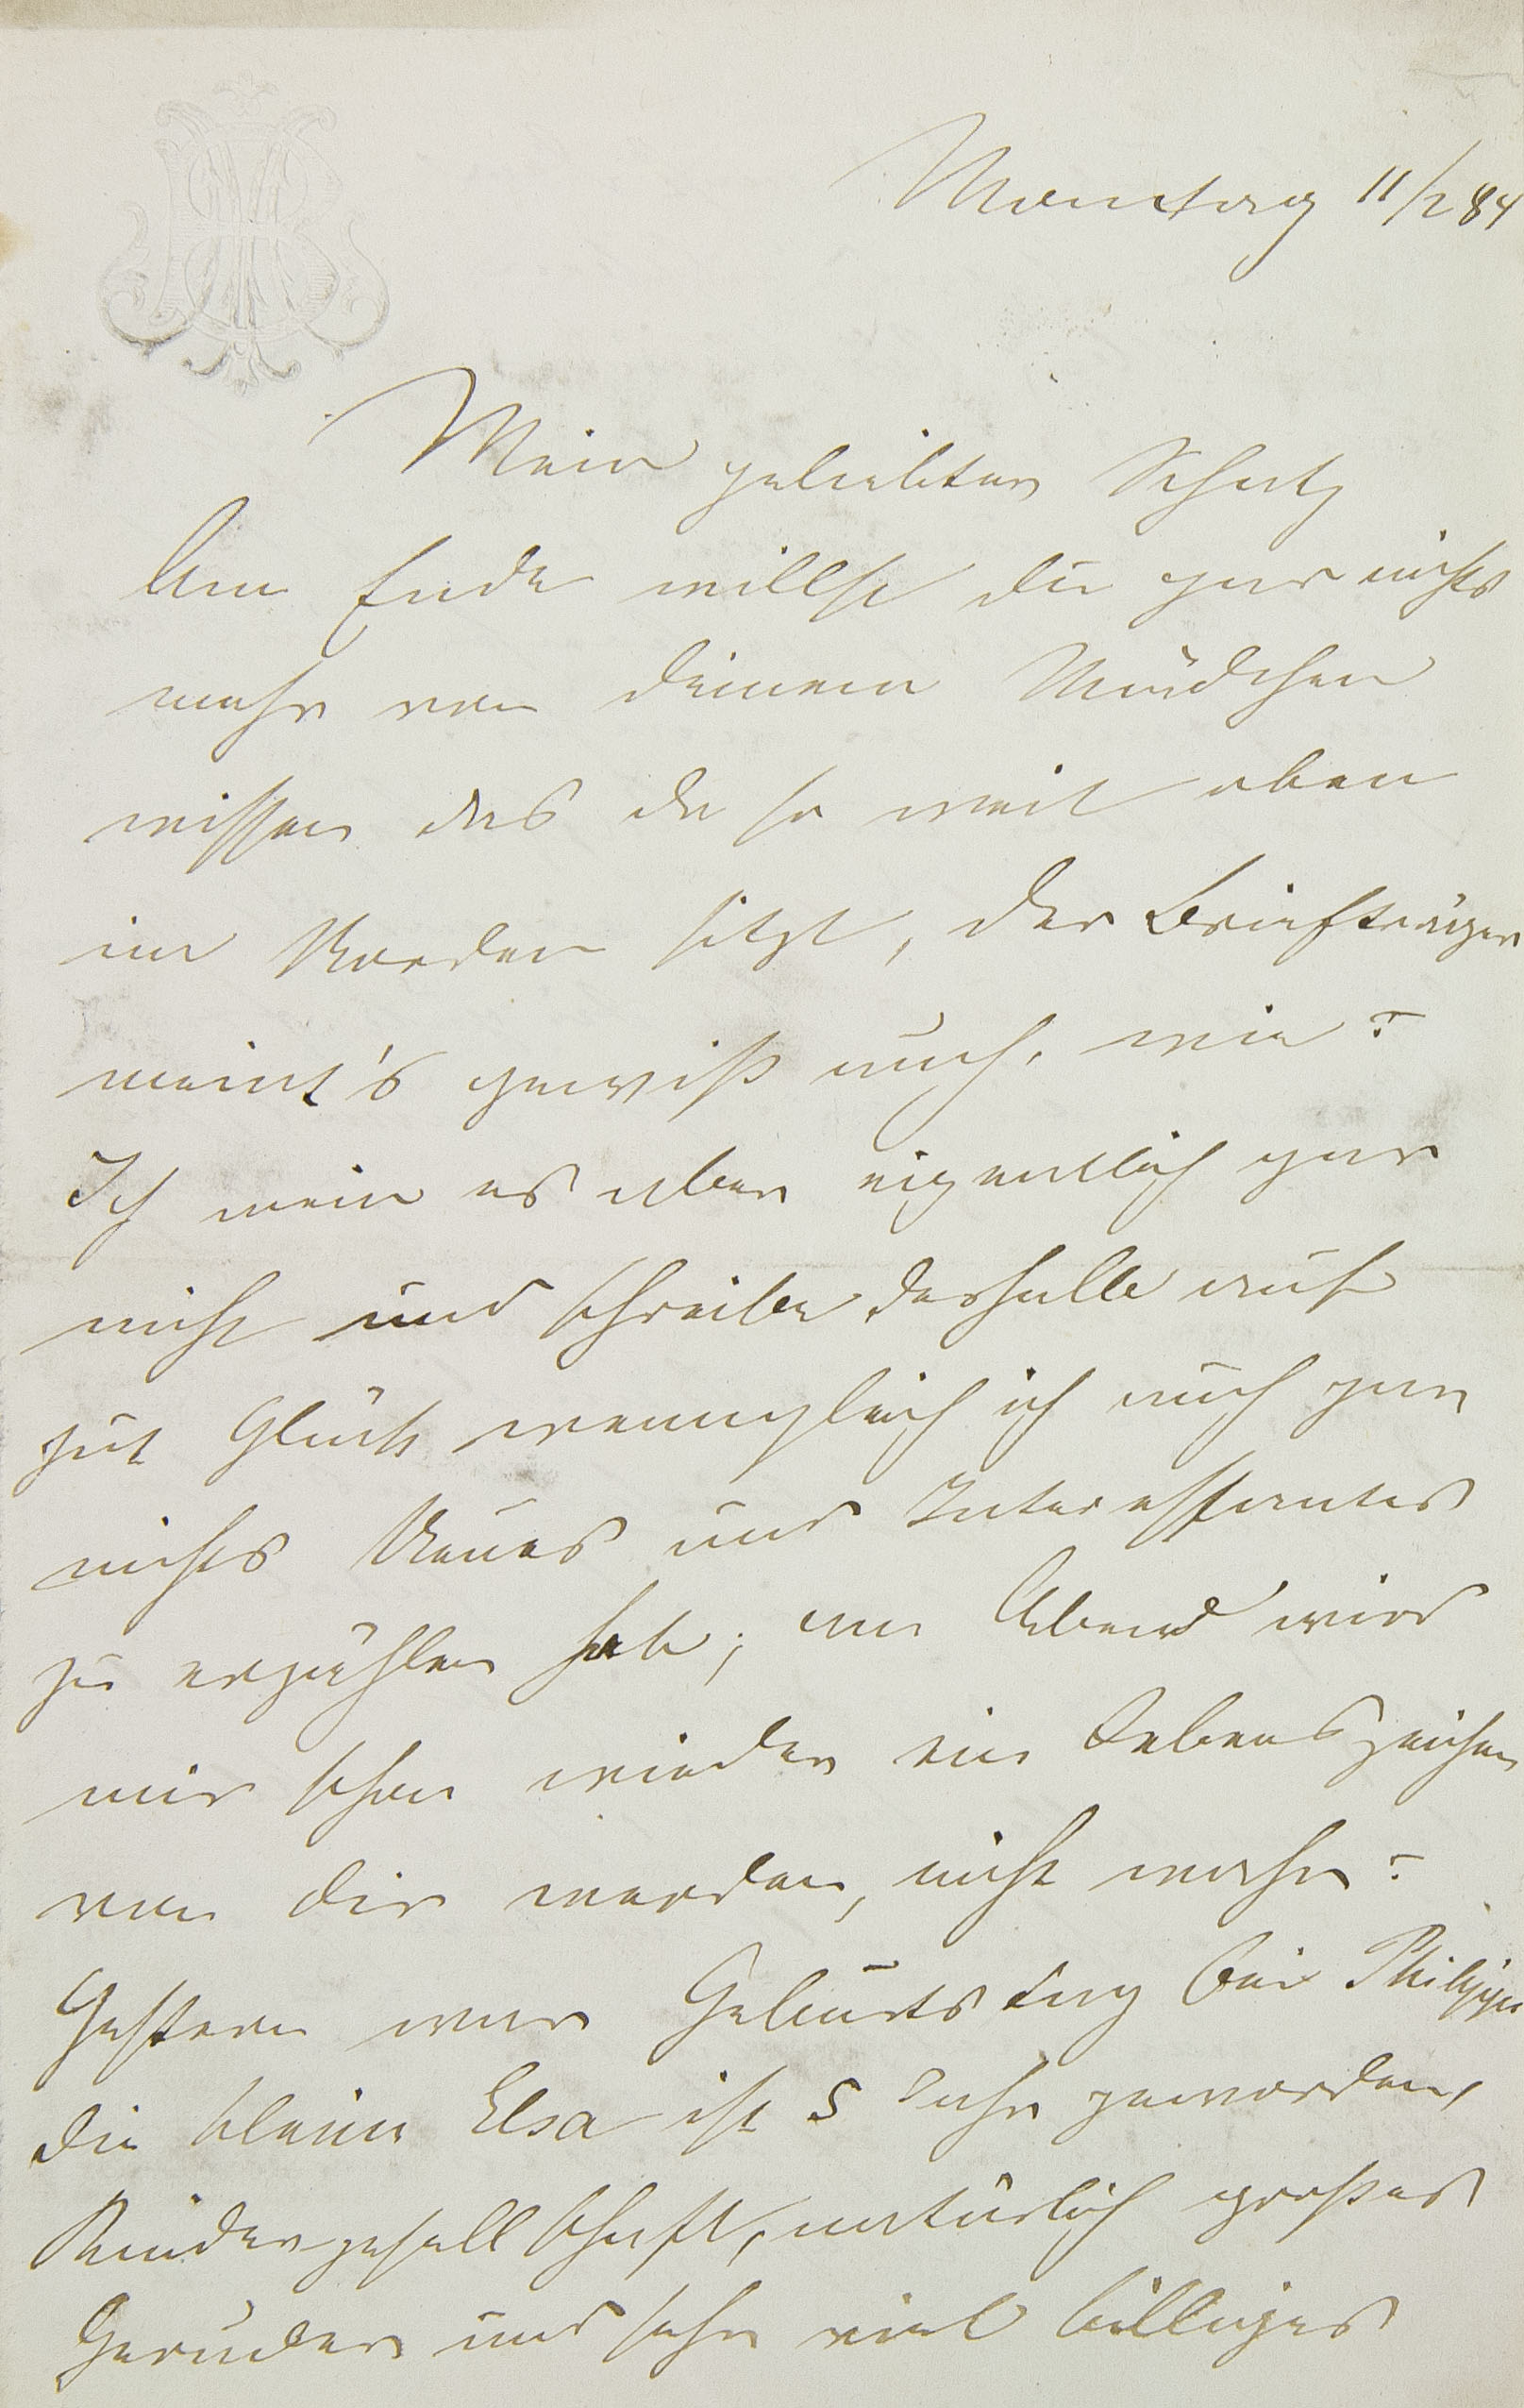 Montag 11/2 84
Mein geliebter Schatz
Am Ende willst du gar nichts
mehr von deinem Mädchen
wissen das da so weit oben
im Norden sitzt, der Briefträger
meint's gewiß auch, wie?
Ich mein es aber eigentlich gar
nicht und schreibe deshalb auf
gut Glück wenngleich ich auch gar
nichts Neues und Interessantes
zu erzählen hab; am Abend wird
mir schon wieder ein Lebenszeichen
von dir werden, nicht wahr?
Gestern war Geburtstag bei Philipps
die kleine Elsa ist 5 Jahr geworden,
Kindergesellschaft, natürlich großes
und sehr viel billiges